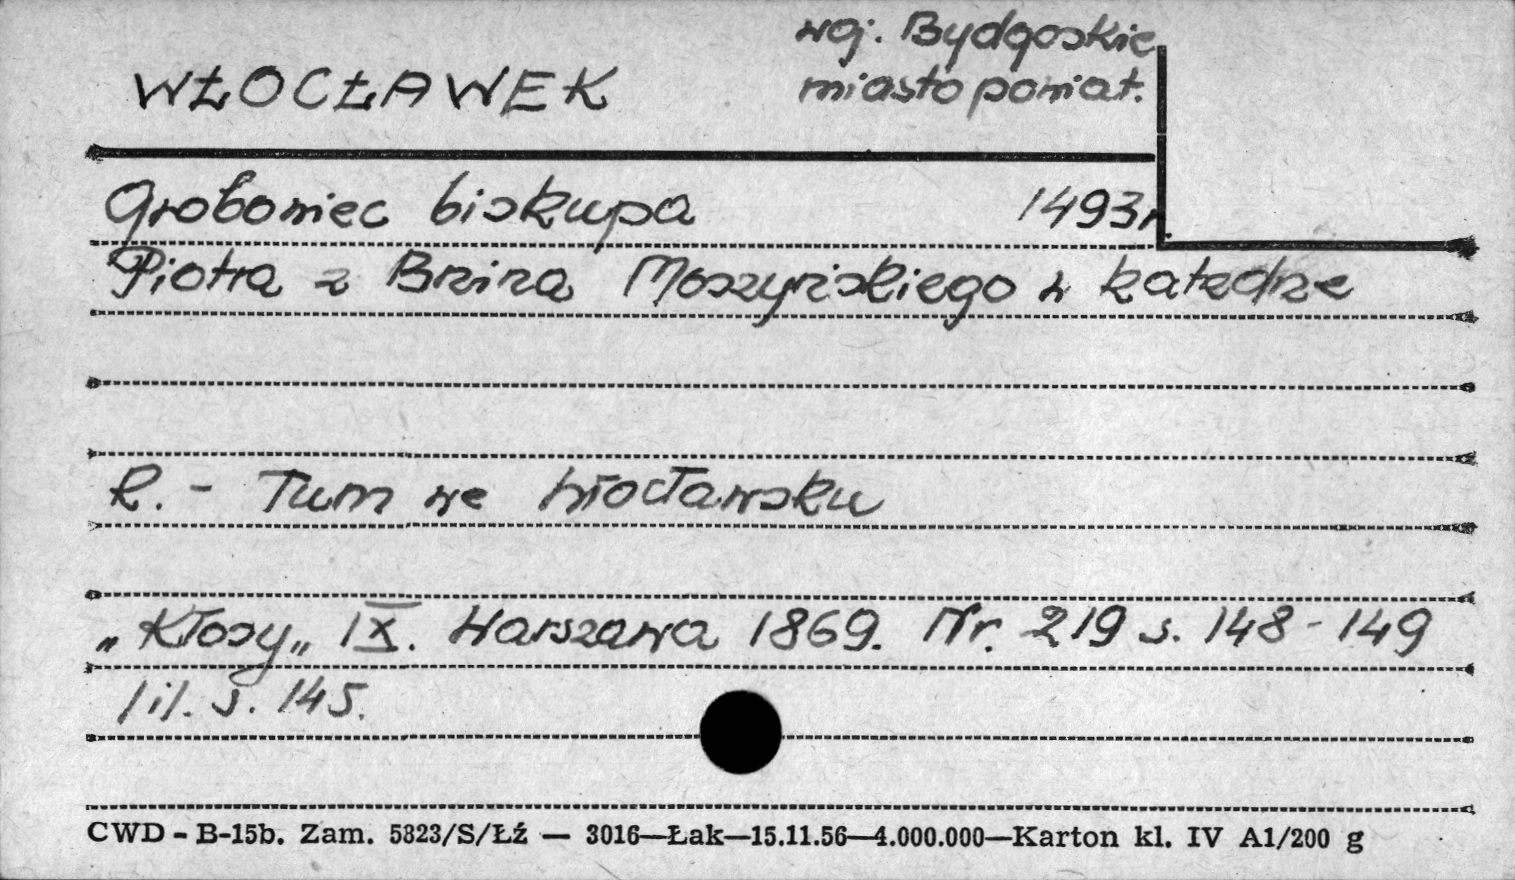 woj. Bydgoskie
WŁOCŁAWEK
miasto powiat.
Grobowiec biskupa 1493r.
Piotra z Bnina Moszyńskiego w katedrze
R. - Tum we Włocławsku
„Kłosy„ IX. Warszawa 1869. Nr. 219 s. 148-149
/il. s. 145.
CWD - B-15b. Zam. 5823/S/Łź — 3016—Łak—15.11.56—4.000.000—Karton kl. IV A1/200 g